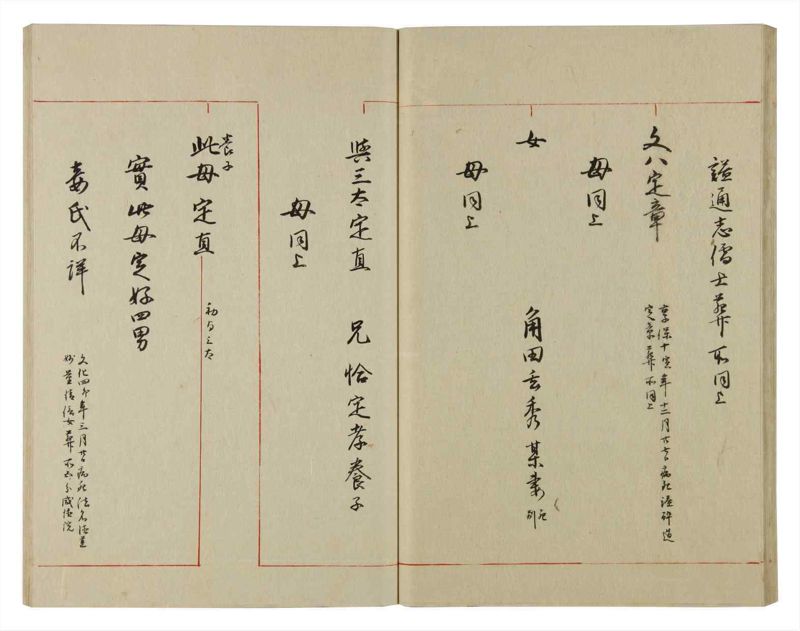 諡通志信士葬所同上
文八定章
享保十寅年十二月廿七日病死諡
定章葬所同上
母同上
女
角田玄秀某妻
母同上
與三太定直 兄恰定孝養子
母同上
養子
此母定直
初与三太
實此母定好四男
妻氏不詳
文化四卯年三月廿日病死法名
妙 信女葬所